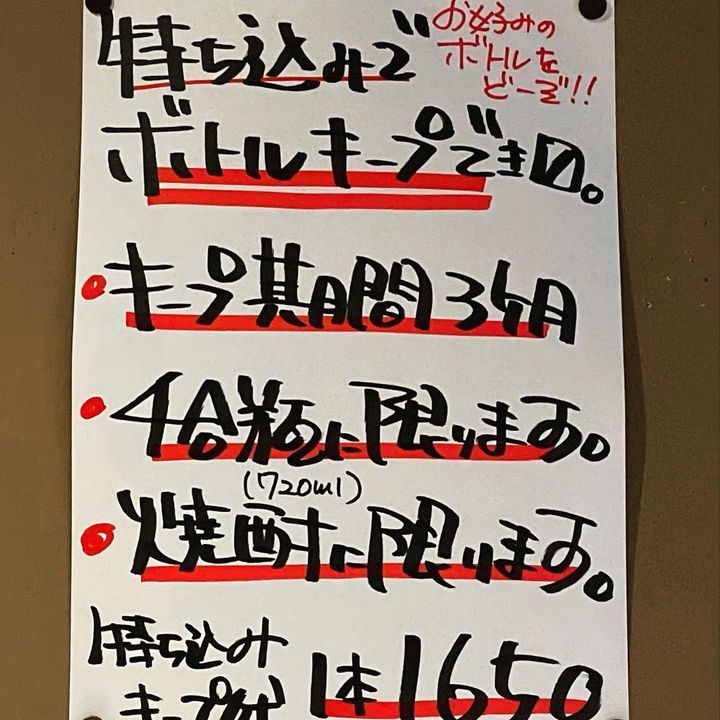 持ち込みで
お好みの
ボトルを
どーぞ!!
ボトルキープでき〼。
キープ期間3ヶ月
4合瓶に限ります。
(720ml)
焼酎に限ります。
持ち込み
キープ
1本1650